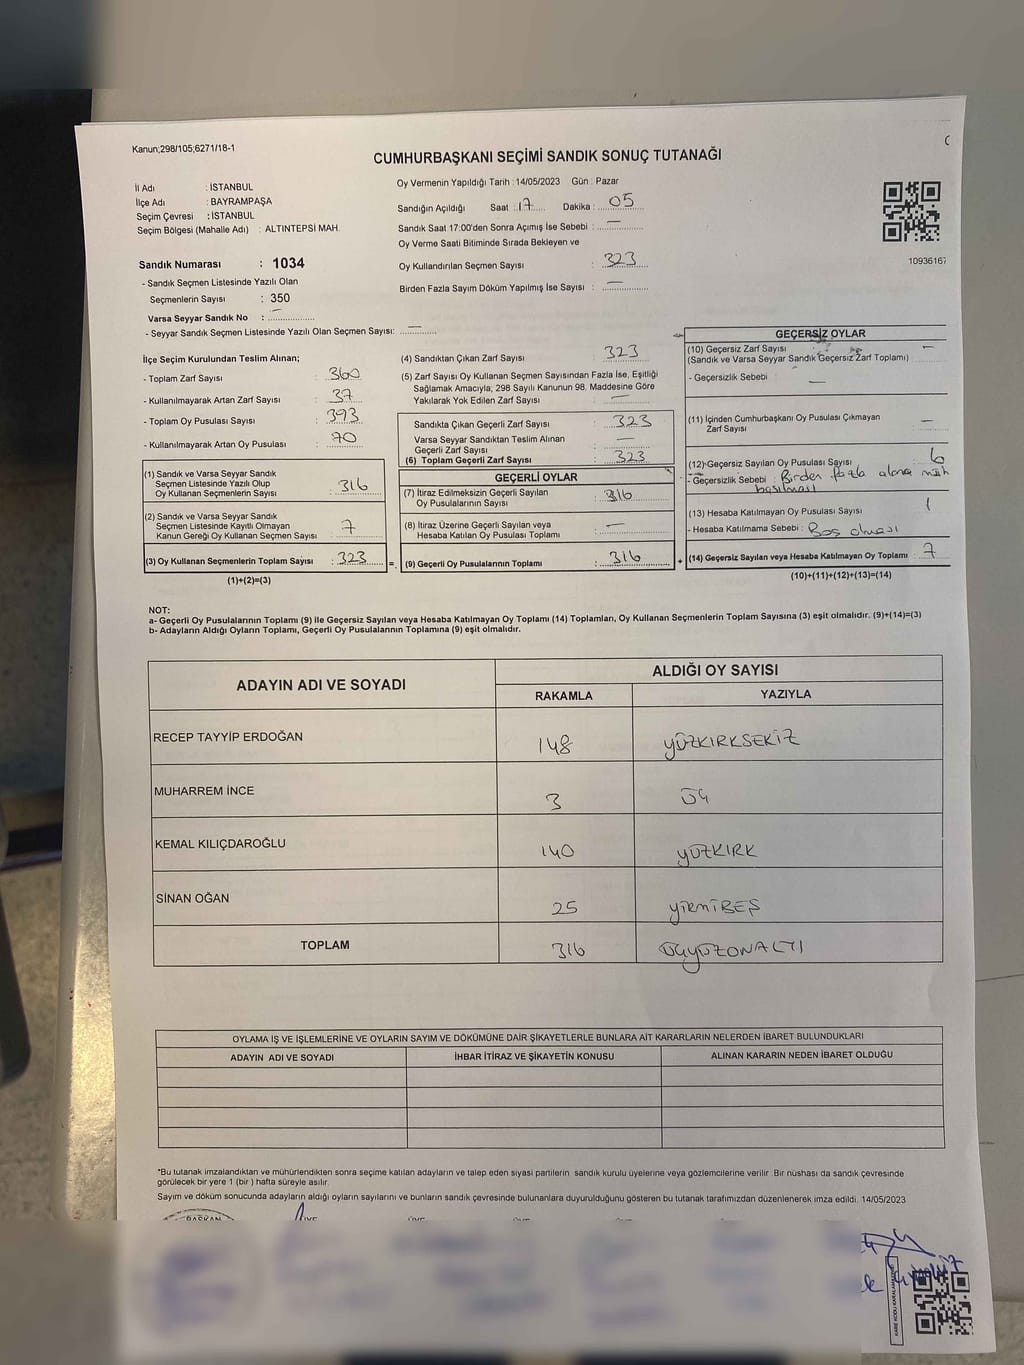 Kanun;298/105;6271/18-1
CUMHURBAŞKANI SEÇİMİ SANDIK SONUÇ TUTANAĞI
İl Adı : İSTANBUL
İlçe Adı : BAYRAMPAŞA
Seçim Çevresi : İSTANBUL
Seçim Bölgesi (Mahalle Adı) : ALTINTEPSİ MAH.
Oy Vermenin Yapıldığı Tarih : 14/05/2023 Gün : Pazar
Sandığın Açıldığı Saat : 17 Dakika : 05
Sandık Saat 17:00'den Sonra Açımış İse Sebebi : —
Oy Verme Saati Bitiminde Sırada Bekleyen ve
Oy Kullandırılan Seçmen Sayısı : 323
Birden Fazla Sayım Döküm Yapılmış İse Sayısı : —
10936167
Sandık Numarası : 1034
- Sandık Seçmen Listesinde Yazılı Olan
Seçmenlerin Sayısı : 350
Varsa Seyyar Sandık No : —
- Seyyar Sandık Seçmen Listesinde Yazılı Olan Seçmen Sayısı: —
İlçe Seçim Kurulundan Teslim Alınan;
- Toplam Zarf Sayısı : 360
- Kullanılmayarak Artan Zarf Sayısı : 37
- Toplam Oy Pusulası Sayısı : 393
- Kullanılmayarak Artan Oy Pusulası : 70
(1) Sandık ve Varsa Seyyar Sandık
Seçmen Listesinde Yazılı Olup
Oy Kullanan Seçmenlerin Sayısı : 316
(2) Sandık ve Varsa Seyyar Sandık
Seçmen Listesinde Kayıtlı Olmayan
Kanun Gereği Oy Kullanan Seçmen Sayısı : 7
(3) Oy Kullanan Seçmenlerin Toplam Sayısı : 323 =
(1)+(2)=(3)
(4) Sandıktan Çıkan Zarf Sayısı : 323
(5) Zarf Sayısı Oy Kullanan Seçmen Sayısından Fazla İse, Eşitliği
Sağlamak Amacıyla, 298 Sayılı Kanunun 98. Maddesine Göre
Yakılarak Yok Edilen Zarf Sayısı : —
Sandıkta Çıkan Geçerli Zarf Sayısı : 323
Varsa Seyyar Sandıktan Teslim Alınan
Geçerli Zarf Sayısı : —
(6) Toplam Geçerli Zarf Sayısı : 323
GEÇERLİ OYLAR
(7) İtiraz Edilmeksizin Geçerli Sayılan
Oy Pusulalarının Sayısı : 316
(8) İtiraz Üzerine Geçerli Sayılan veya
Hesaba Katılan Oy Pusulası Toplamı : —
(9) Geçerli Oy Pusulalarının Toplamı : 316 +
GEÇERSİZ OYLAR
(10) Geçersiz Zarf Sayısı : —
(Sandık ve Varsa Seyyar Sandık Geçersiz Zarf Toplamı)
- Geçersizlik Sebebi : —
(11) İçinden Cumhurbaşkanı Oy Pusulası Çıkmayan
Zarf Sayısı : —
(12) Geçersiz Sayılan Oy Pusulası Sayısı : 6
- Geçersizlik Sebebi : Birden fazla alana müh
basılması
(13) Hesaba Katılmayan Oy Pusulası Sayısı : 1
- Hesaba Katılmama Sebebi : Boş olması
(14) Geçersiz Sayılan veya Hesaba Katılmayan Oy Toplamı : 7
(10)+(11)+(12)+(13)=(14)
NOT:
a- Geçerli Oy Pusulalarının Toplamı (9) ile Geçersiz Sayılan veya Hesaba Katılmayan Oy Toplamı (14) Toplamları, Oy Kullanan Seçmenlerin Toplam Sayısına (3) eşit olmalıdır. (9)+(14)=(3)
b- Adayların Aldığı Oyların Toplamı, Geçerli Oy Pusulalarının Toplamına (9) eşit olmalıdır.
ADAYIN ADI VE SOYADI ALDIĞI OY SAYISI
RAKAMLA YAZIYLA
RECEP TAYYİP ERDOĞAN 148 YÜZKIRKSEKİZ
MUHARREM İNCE 3 ÜÇ
KEMAL KILIÇDAROĞLU 140 YÜZKIRK
SİNAN OĞAN 25 YİRMİBEŞ
TOPLAM 316 ÜÇYÜZONALTI
OYLAMA İŞ VE İŞLEMLERİNE VE OYLARIN SAYIM VE DÖKÜMÜNE DAİR ŞİKAYETLERLE BUNLARA AİT KARARLARIN NELERDEN İBARET BULUNDUKLARI
ADAYIN ADI VE SOYADI İHBAR İTİRAZ VE ŞİKAYETİN KONUSU ALINAN KARARIN NEDEN İBARET OLDUĞU
*Bu tutanak imzalandıktan ve mühürlendikten sonra seçime katılan adayların ve talep eden siyasi partilerin sandık kurulu üyelerine veya gözlemcilerine verilir. Bir nüshası da sandık çevresinde
görülecek bir yere 1 (bir ) hafta süreyle asılır.
Sayım ve döküm sonucunda adayların aldığı oyların sayılarını ve bunların sandık çevresinde bulunanlara duyurulduğunu gösteren bu tutanak tarafımızdan düzenlenerek imza edildi. 14/05/2023
BAŞKAN